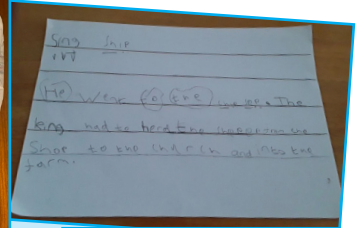 Sing
He went to the The
king had to herd the from the
Shoe to the church and into the
farm.